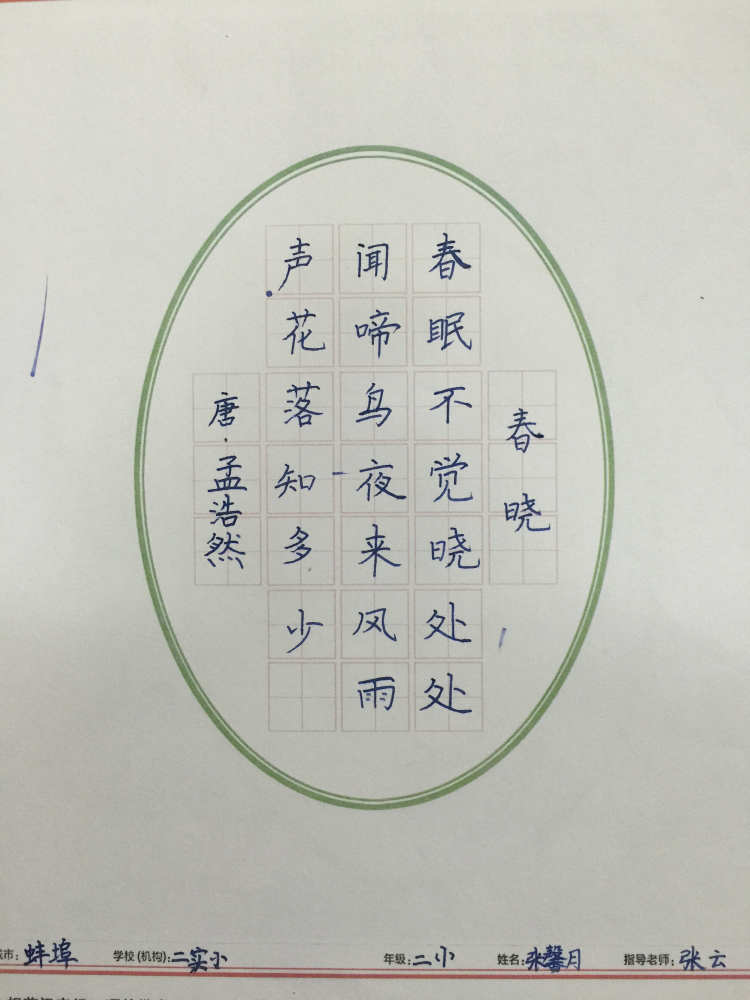 春晓
春眠不觉晓处处
闻啼鸟夜来风雨
声花落知多少
唐·孟浩然
城市：蚌埠 学校(机构)：二实小 年级：二小 姓名：张馨月 指导老师：张云